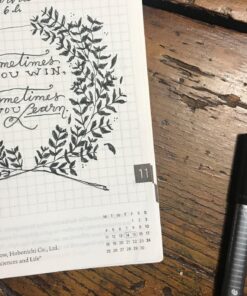 6h.
ometimes
OU WIN,
ometimes
OU Learn.
11
M T W T F S S
1 2 3
4 5 6 7 8 9 10
11 12 13 14 15 16 17
18 19 20 21 22 23 24
25 26 27 28 29 30
ow, Hobonichi Co., Ltd.
Sciences and Life"